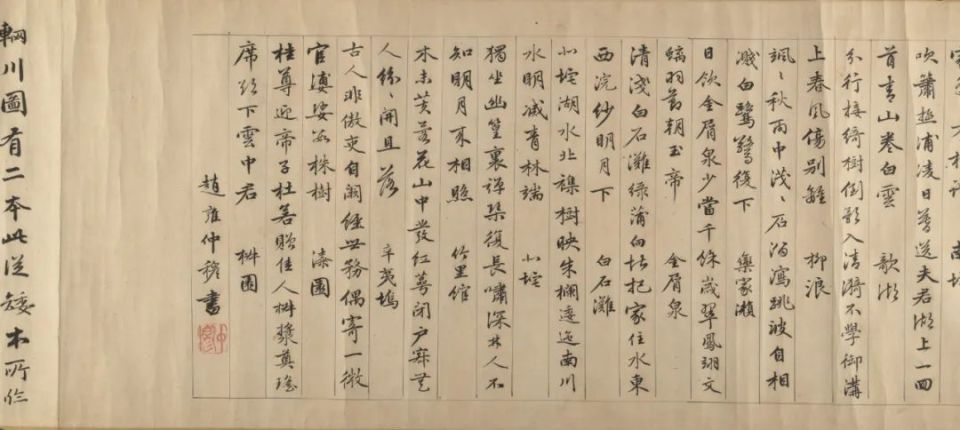 不相 南垞
吹簫極浦凌日暮送夫君湖上一回
首青山卷白雲 歌湖
分行接綺樹倒影入清漪不學御溝
上春風傷別離 柳浪
颯〻秋雨中淺〻石溜瀉跳波自相
濺白鷺驚復下 欒家瀨
日飲金屑泉少當千餘歲翠鳳翊文
螭羽節朝玉帝 金屑泉
清淺白石灘綠蒲向堪把家住水東
西浣紗明月下 白石灘
北垞湖水北襍樹映朱欄逶迤南川
水明滅青林端 北垞
獨坐幽篁裏彈琴復長嘯深林人不
知明月來相照 竹里館
木末芙蓉花山中發紅萼閉户寂無
人紛〻開且落 辛夷塢
古人非傲吏自闕經世務偶寄一微
官婆娑數株樹 漆園
桂尊迎帝子杜若贈佳人椒漿奠瑤
席欲下雲中君 椒園
趙雍仲穆書
輞川圖有二本此從矮本所